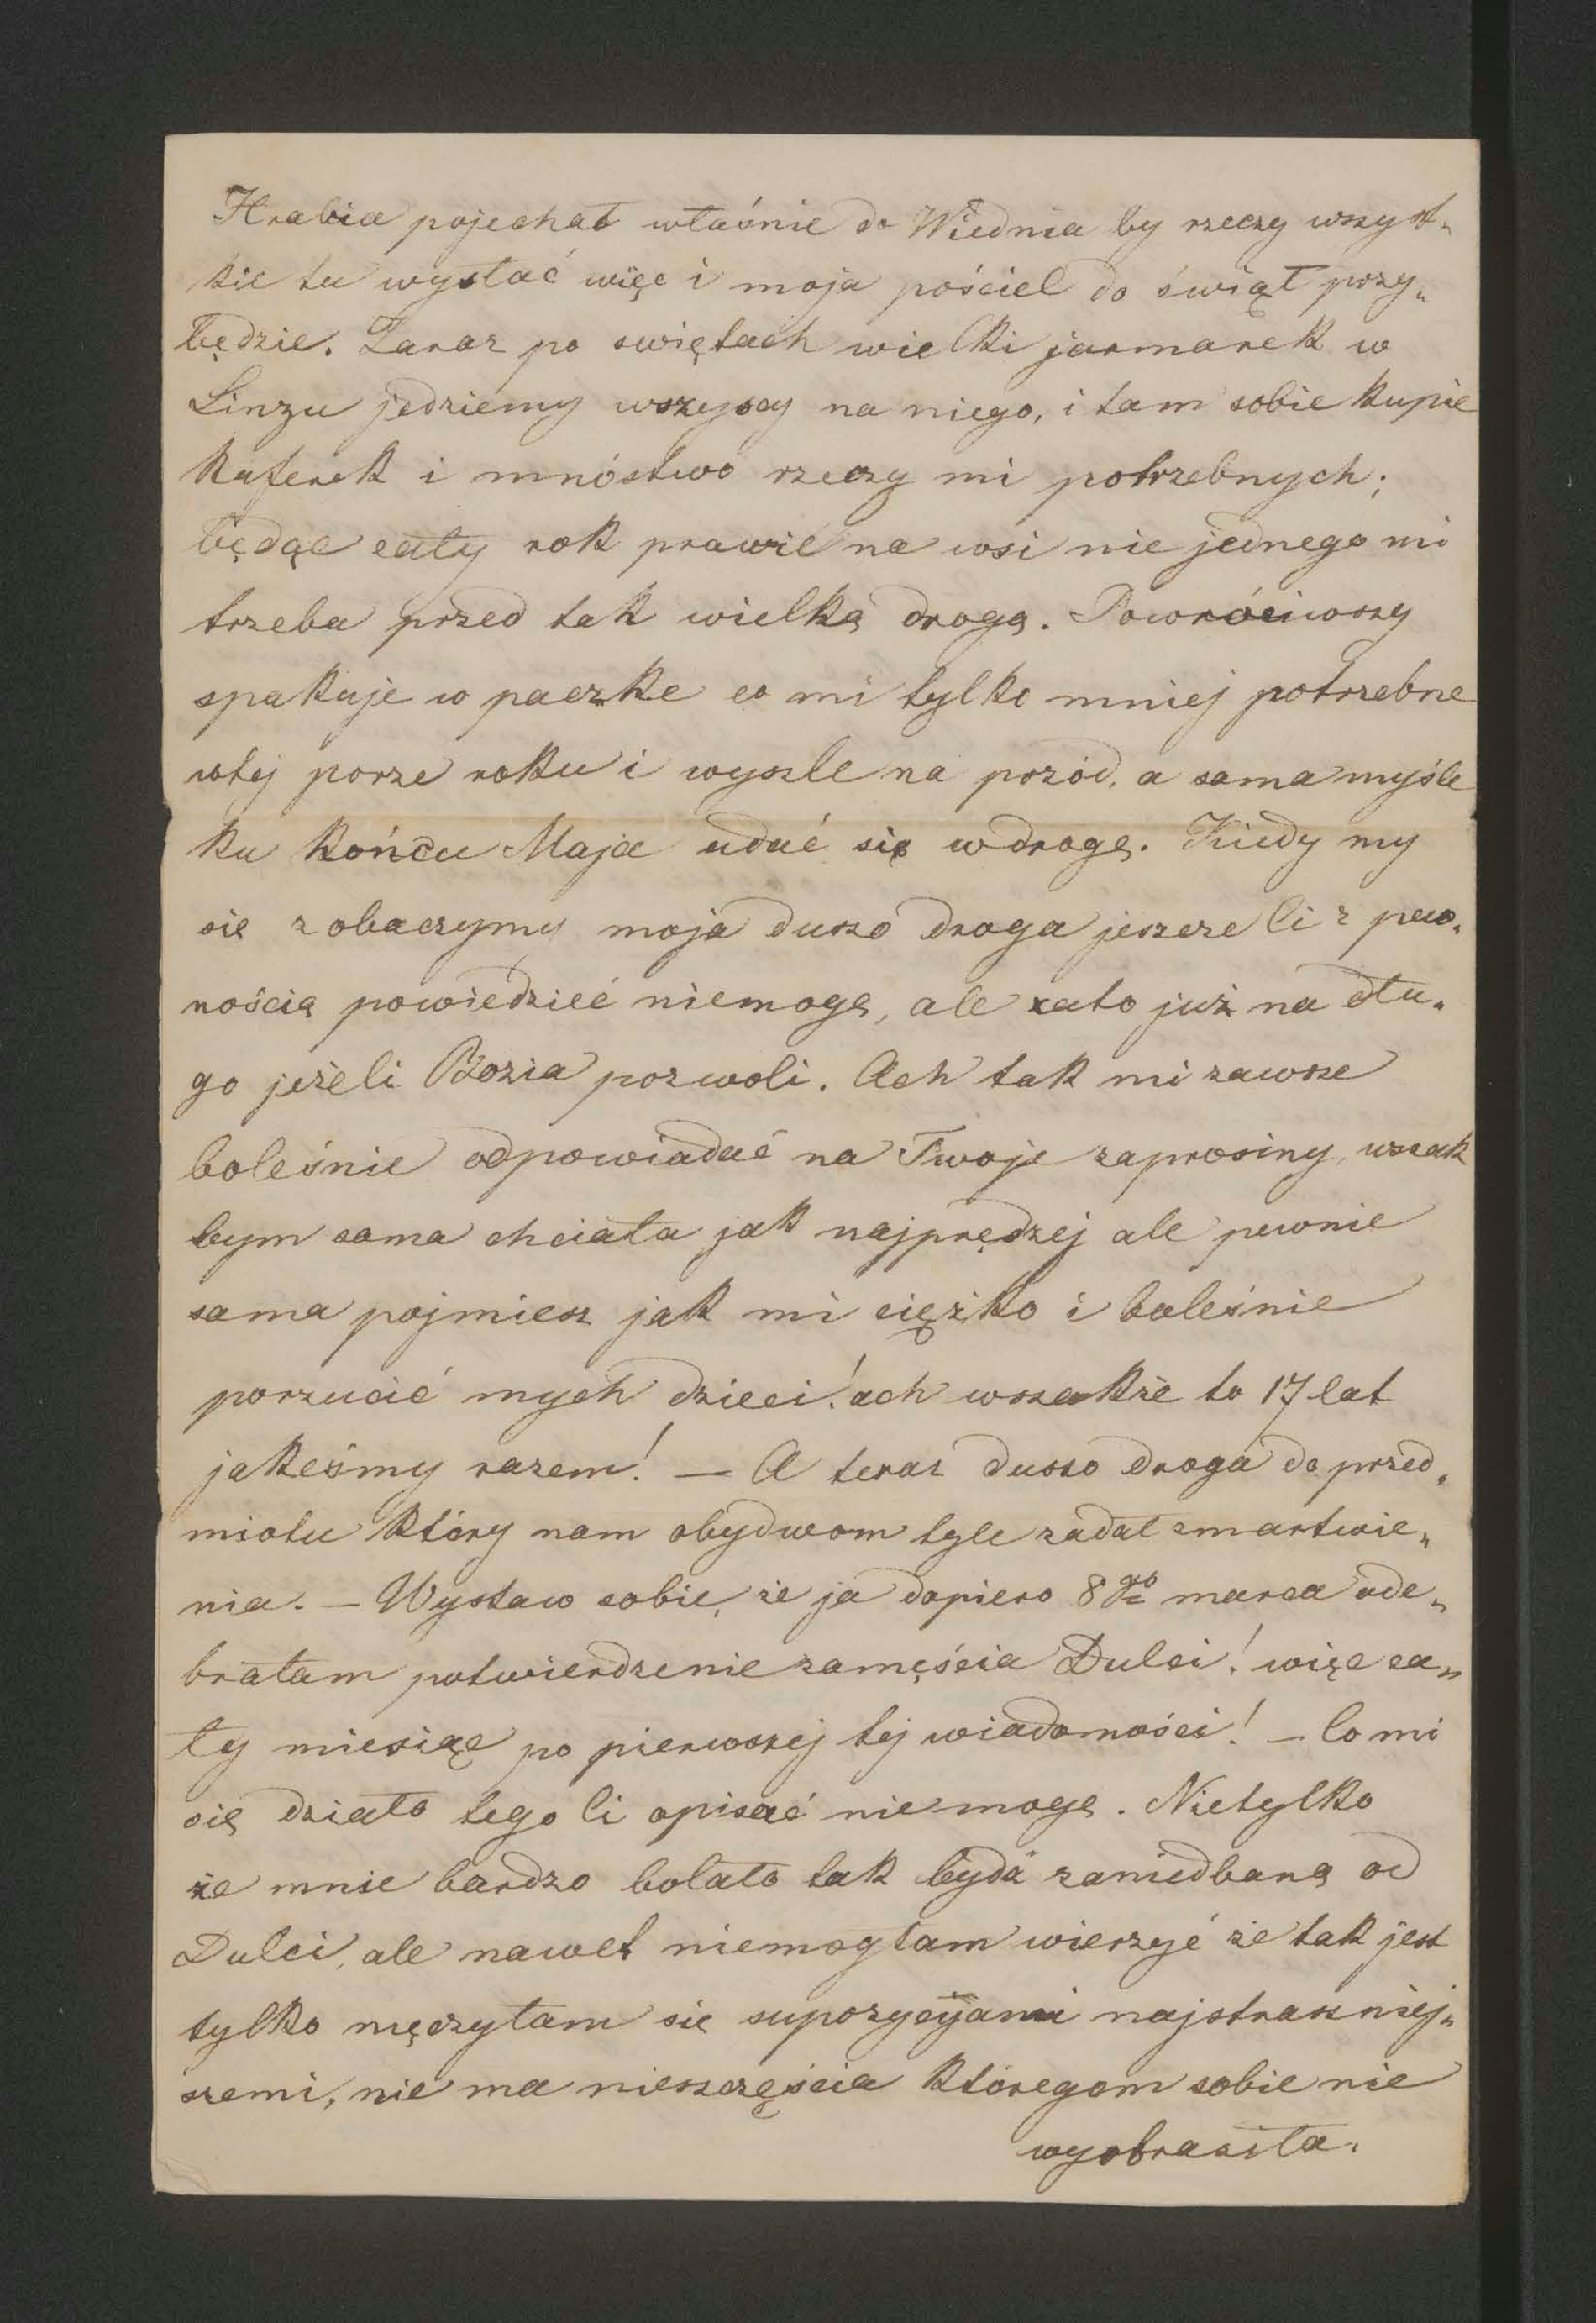 Hrabia pojechał właśnie do Wiednia by rzeczy wszyst„
kie tu wysłać więc i moja pościel do świąt przy„
będzie. Zaraz po swiętach wielki jarmarek w
Linzu jedziemy wszyscy na niego, i tam sobie kupie
kuferek i mnóstwo rzeczy mi potrzebnych;
będąc cały rok prawie na wsi nie jednego mi
trzeba przed tak wielką drogą. Powróciwszy
spakuje w paczke co mi tylko mniej potrzebne
wtej porze roku i wyszle na pozód, a sama myśle
ku końcu Maja udać się wdrogę. Kiedy my
sie zobaczymy moja duszo droga jeszcze Ci z pew„
nością powiedzieć niemogę, ale zato już na dłu„
go jeżeli Bozia pozwoli. Ach tak mi zawsze
boleśnie odpowiadać na Twoje zaprosiny, wszak
bym sama chciała jak najprędzej ale pewnie
sama pojmiesz jak mi ciężko i boleśnie
porzucić mych dzieci! ach wszakże to 17 lat
jakeśmy razem! — A teraz duszo droga do przed„
miotu który nam obydwom tyle zadał zmartwie„
nia. — Wystaw sobie, że ja dopiero 8go marca ode„
brałam potwierdzenie zamęścia Dulci! więc ca„
ły miesiąc po pierwszej tej wiadomości! — Co mi
się działo tego Ci opisać niemogę. Nietylko
że mnie bardzo bolało tak bydź zaniedbaną od
Dulci, ale nawet niemogłam wierzyć że tak jest
tylko męczyłam się supozycyjami najstraszniej„
szemi, nie ma nieszczęścia któregom sobie nie
wyobraziła.